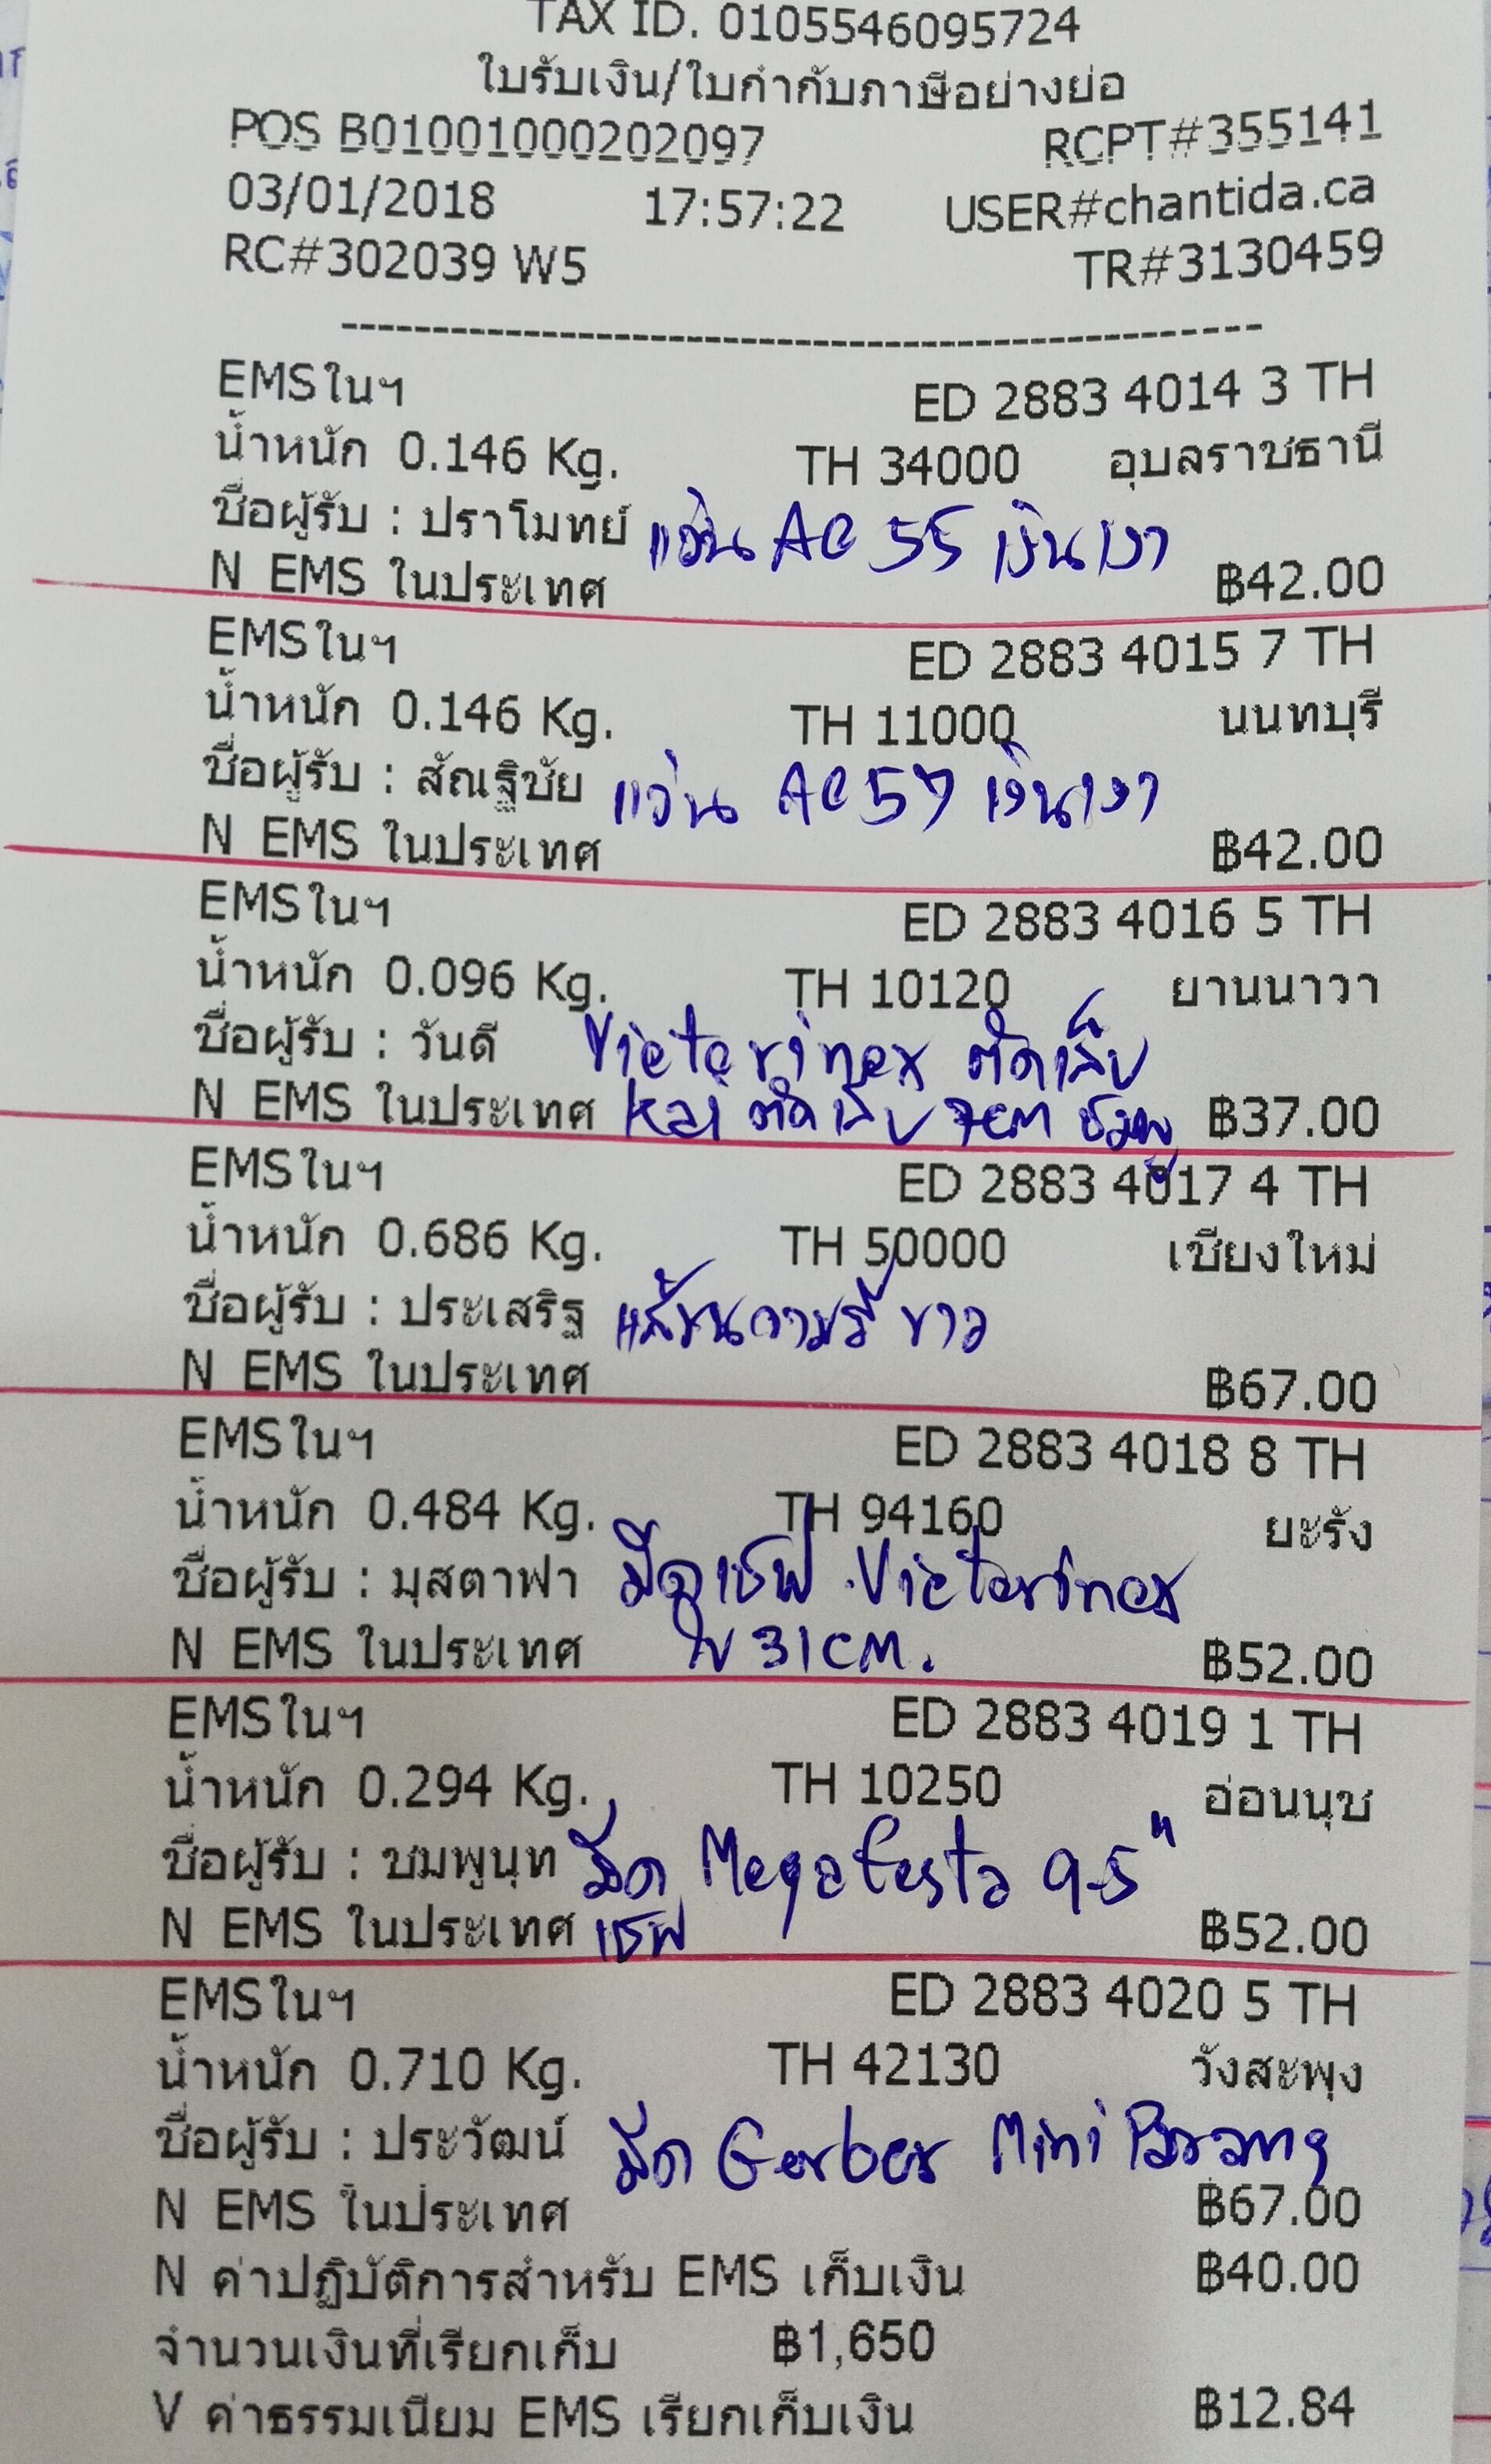 TAX ID. 0105546095724
ใบรับเงิน/ใบกำกับภาษีอย่างย่อ
POS B01001000202097 RCPT#355141
03/01/2018 17:57:22 USER#chantida.ca
RC#302039 W5 TR#3130459
--------------------------------------------
EMSในฯ ED 2883 4014 3 TH
น้ำหนัก 0.146 Kg. TH 34000 อุบลราชธานี
ชื่อผู้รับ : ปราโมทย์ แว่น AC 55 เงินเงา
N EMS ในประเทศ ฿42.00
EMSในฯ ED 2883 4015 7 TH
น้ำหนัก 0.146 Kg. TH 11000 นนทบุรี
ชื่อผู้รับ : สัณฐิชัย แว่น AC 57 เงินเงา
N EMS ในประเทศ ฿42.00
EMSในฯ ED 2883 4016 5 TH
น้ำหนัก 0.096 Kg. TH 10120 ยานนาวา
ชื่อผู้รับ : วันดี Victorinox ตัดเล็บ
N EMS ในประเทศ Kai ตัดเล็บ 7cm ชมพู ฿37.00
EMSในฯ ED 2883 4017 4 TH
น้ำหนัก 0.686 Kg. TH 50000 เชียงใหม่
ชื่อผู้รับ : ประเสริฐ แส้ขนจามรี ขาว
N EMS ในประเทศ ฿67.00
EMSในฯ ED 2883 4018 8 TH
น้ำหนัก 0.484 Kg. TH 94160 ยะรัง
ชื่อผู้รับ : มุสตาฟา มีดเชฟ Victorinox
N EMS ในประเทศ ใบ 31 CM. ฿52.00
EMSในฯ ED 2883 4019 1 TH
น้ำหนัก 0.294 Kg. TH 10250 อ่อนนุช
ชื่อผู้รับ : ชมพูนุท มีด Megafesta 9.5"
N EMS ในประเทศ เชฟ ฿52.00
EMSในฯ ED 2883 4020 5 TH
น้ำหนัก 0.710 Kg. TH 42130 วังสะพุง
ชื่อผู้รับ : ประวัฒน์ มีด Gerber Mini Parang
N EMS ในประเทศ ฿67.00
N ค่าปฏิบัติการสำหรับ EMS เก็บเงิน ฿40.00
จำนวนเงินที่เรียกเก็บ ฿1,650
V ค่าธรรมเนียม EMS เรียกเก็บเงิน ฿12.84